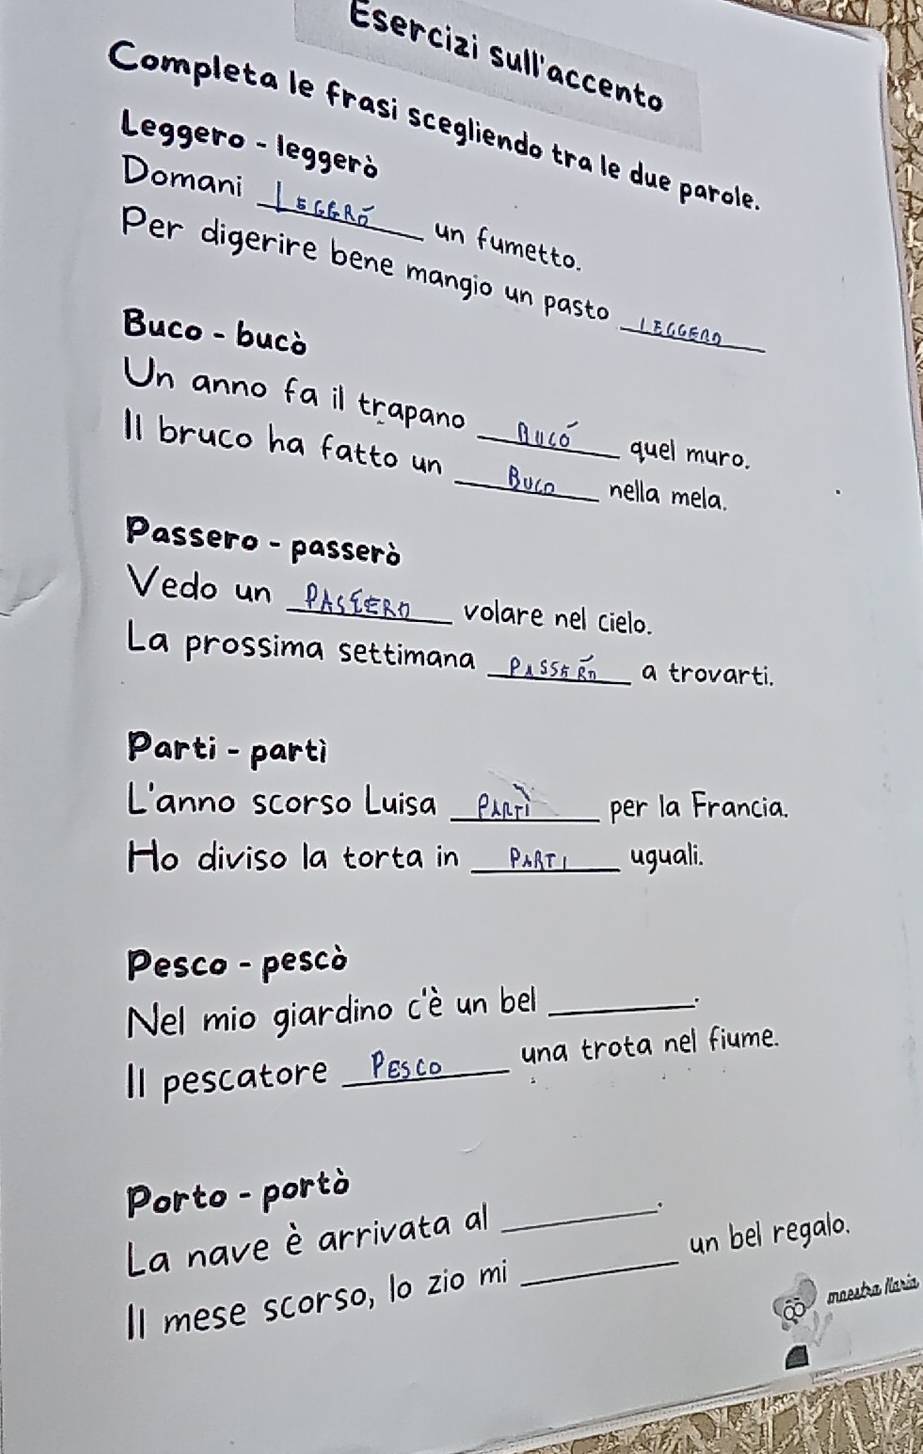 Esercizi sull'accento
Completa le frasi scegliendo tra le due parole.
Leggero - leggerò
Domani LEGGRÓ un fumetto.
Per digerire bene mangio un pasto LEGGERO
Buco - bucò
Un anno fa il trapano BUCÓ quel muro.
Il bruco ha fatto un BUCO nella mela.
Passero - passerò
Vedo un PASSERO volare nel cielo.
La prossima settimana PASSERÓ a trovarti.
Parti - partì
L'anno scorso Luisa PARTÌ per la Francia.
Ho diviso la torta in PARTI uguali.
Pesco - pescò
Nel mio giardino c'è un bel ________.
Il pescatore PESCO una trota nel fiume.
Porto - portò
La nave è arrivata al ________.
Il mese scorso, lo zio mi ________ un bel regalo.
maestra Ilaria